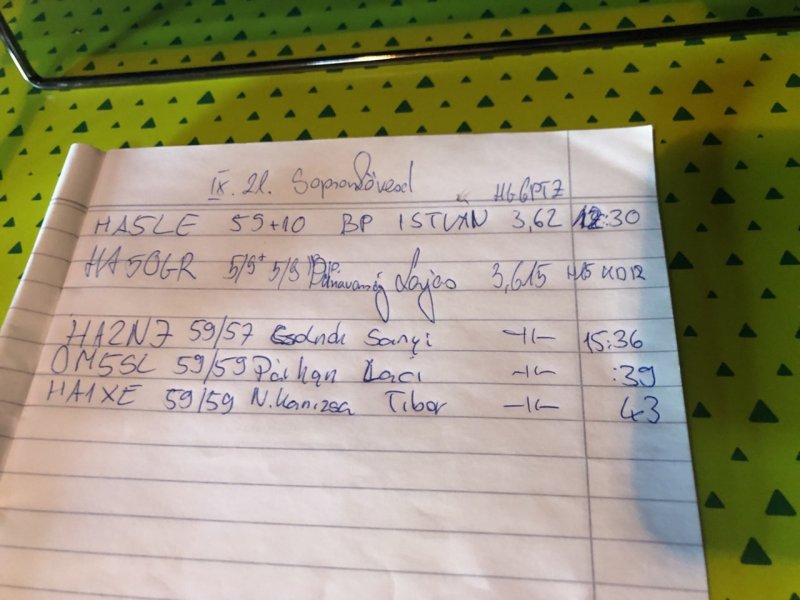 IX. 21. Sopronkövesd HG6PTZ
HA5LE 59+10 BP ISTVÁN 3,62 12:30
HA5OGR 5/9+ 5/9 Lajos 3,615
HA2NJ 59/57 Sanyi -//- 15:36
OM5SL 59/59 Párkán Laci -//- :39
HA1XE 59/59 N.Kanizsa Tibor -//- 43